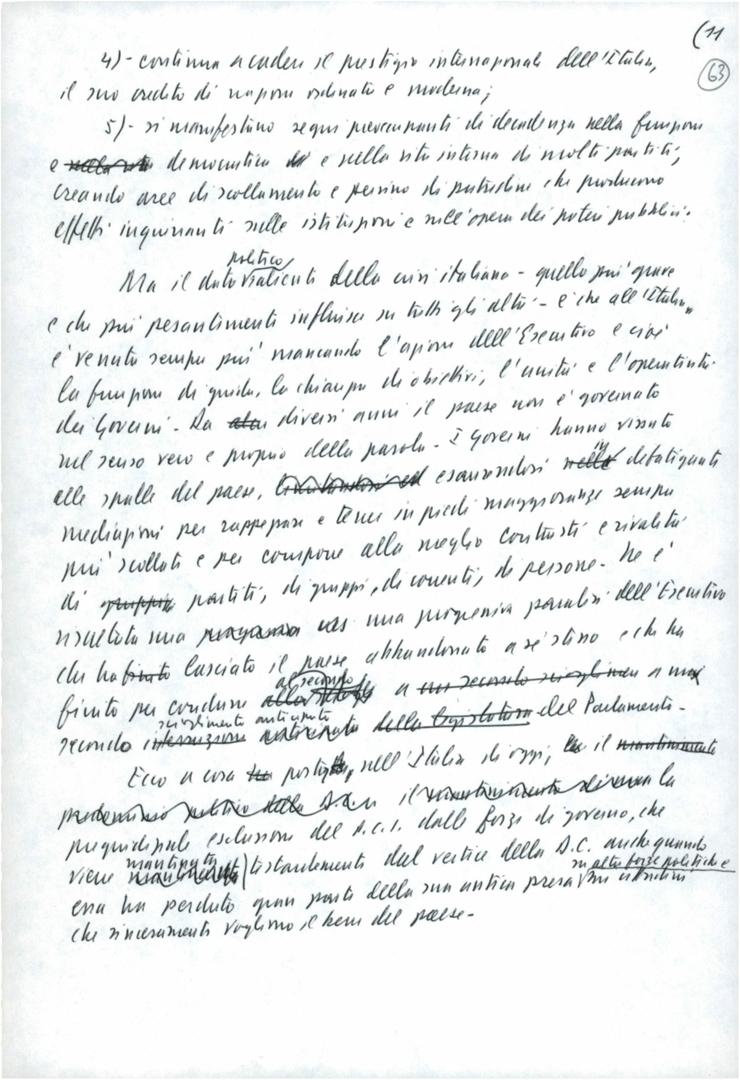 (11
63
4)- continua a cadere il prestigio internazionale dell'Italia,
il suo credito di nazione ordinata e moderna;
5)- si manifestano segni preoccupanti di decadenza nella funzione
e democratica e nella vita interna di molti partiti,
creando aree di scollamento e persino di putredine che producono
effetti inquinanti sulle istituzioni e sull'opera dei poteri pubblici.
politico
Ma il dato saliente della crisi italiana - quello più grave
e che più pesantemente influisce su tutti gli altri - è che all'Italia
è venuta sempre più mancando l'azione dell'Esecutivo e cioè
la funzione di guida, la chiarezza di obiettivi, l'unità e l'operatività
dei Governi. Da diversi anni il paese non è governato
nel senso vero e proprio della parola. I Governi hanno vissuto
alle spalle del paese, esaurendosi in defatiganti
mediazioni per rappezzare e tenere in piedi maggioranze sempre
più scollate e per comporre alla meglio contrasti e rivalità
di gruppi partiti, di gruppi, di correnti, di persone. Ne è
risultata una una progressiva paralisi dell'Esecutivo
che ha lasciato il paese abbandonato a se stesso e che ha
al secondo
finito per condurre a un secondo scioglimento a un
scioglimento anticipato
secondo interruzione anticipata della legislatura del Parlamento.
Ecco a cosa porta, nell'Italia di oggi, il mantenimento
predominio politico della D.C. il mantenimento di una la
pregiudiziale esclusione del P.C.I. dalle forze di governo, che
mantenuta
viene testardamente dal vertice della D.C. anche quando
su altre forze politiche e
essa ha perduto gran parte della sua antica presa sui cittadini
che sinceramente vogliono il bene del paese.